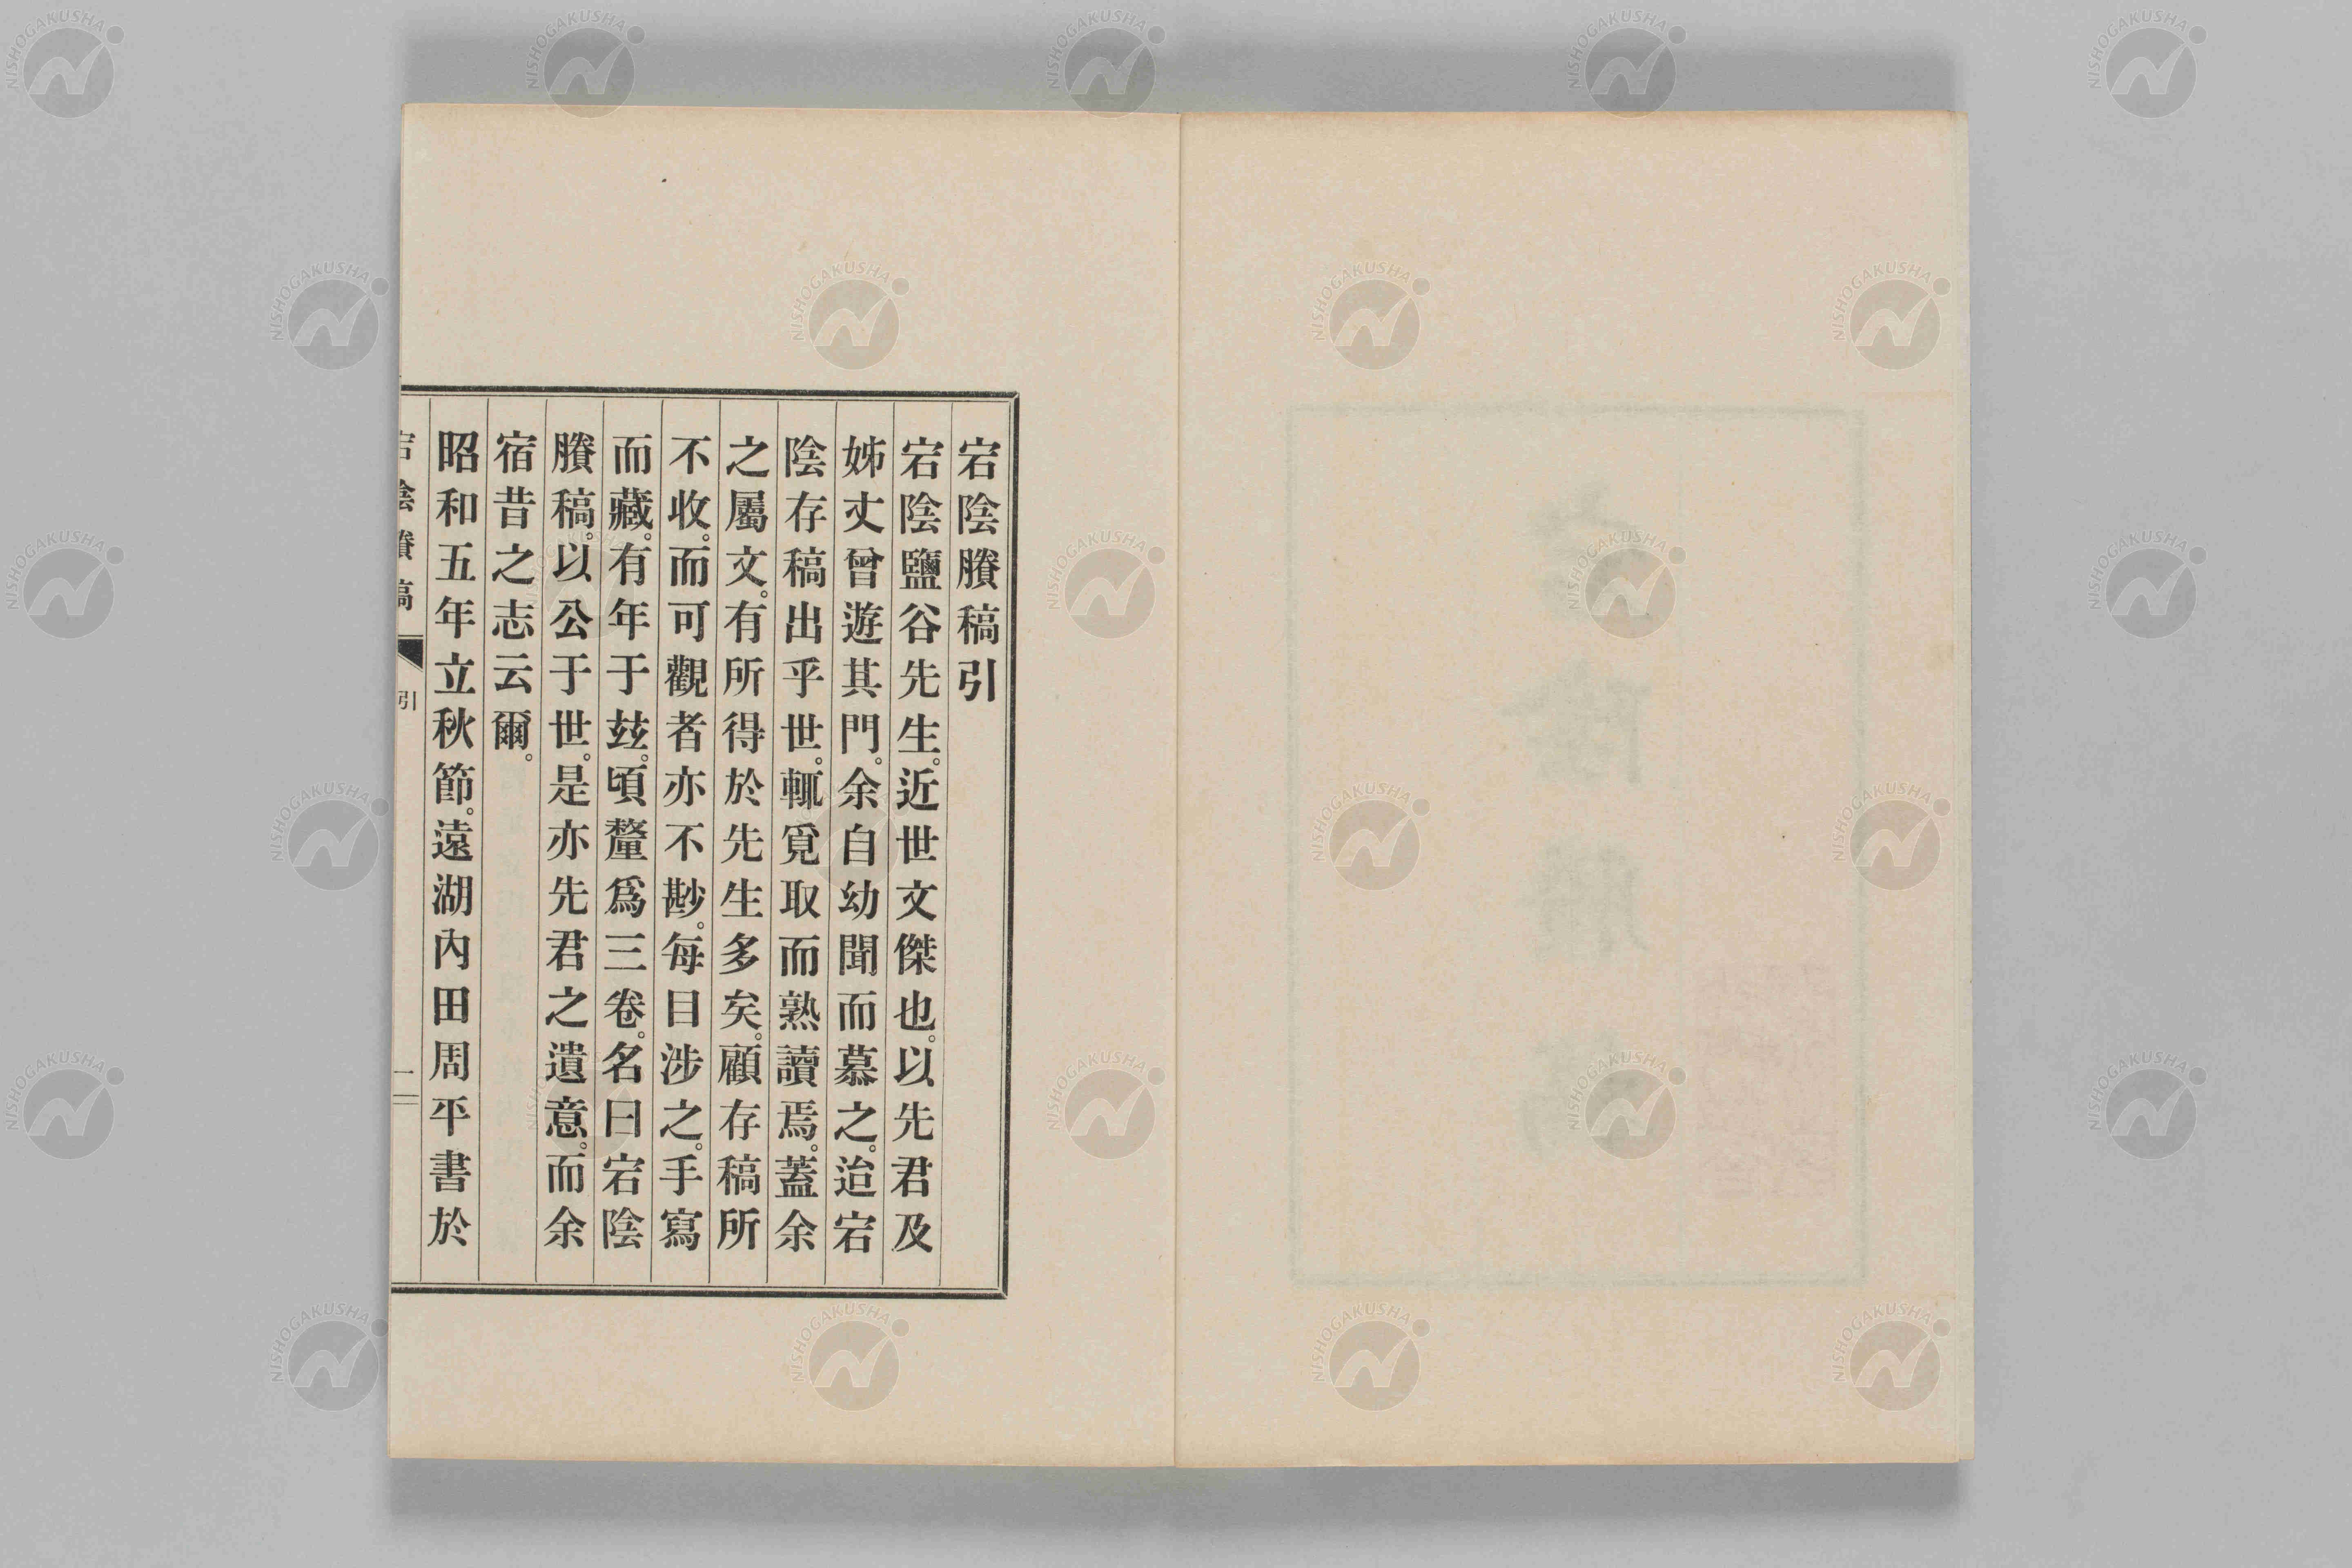 宕陰賸稿引
宕陰鹽谷先生。近世文傑也。以先君及
姊丈曾遊其門。余自幼聞而慕之。迨宕
陰存稿出乎世。輒覓取而熟讀焉。蓋余
之屬文。有所得於先生多矣。顧存稿所
不收。而可觀者亦不尠。每目涉之。手寫
而藏。有年于玆。頃釐爲三卷。名曰宕陰
賸稿。以公于世。是亦先君之遺意。而余
宿昔之志云爾。
昭和五年立秋節。遠湖內田周平書於
引
一
NISHOGAKUSHA